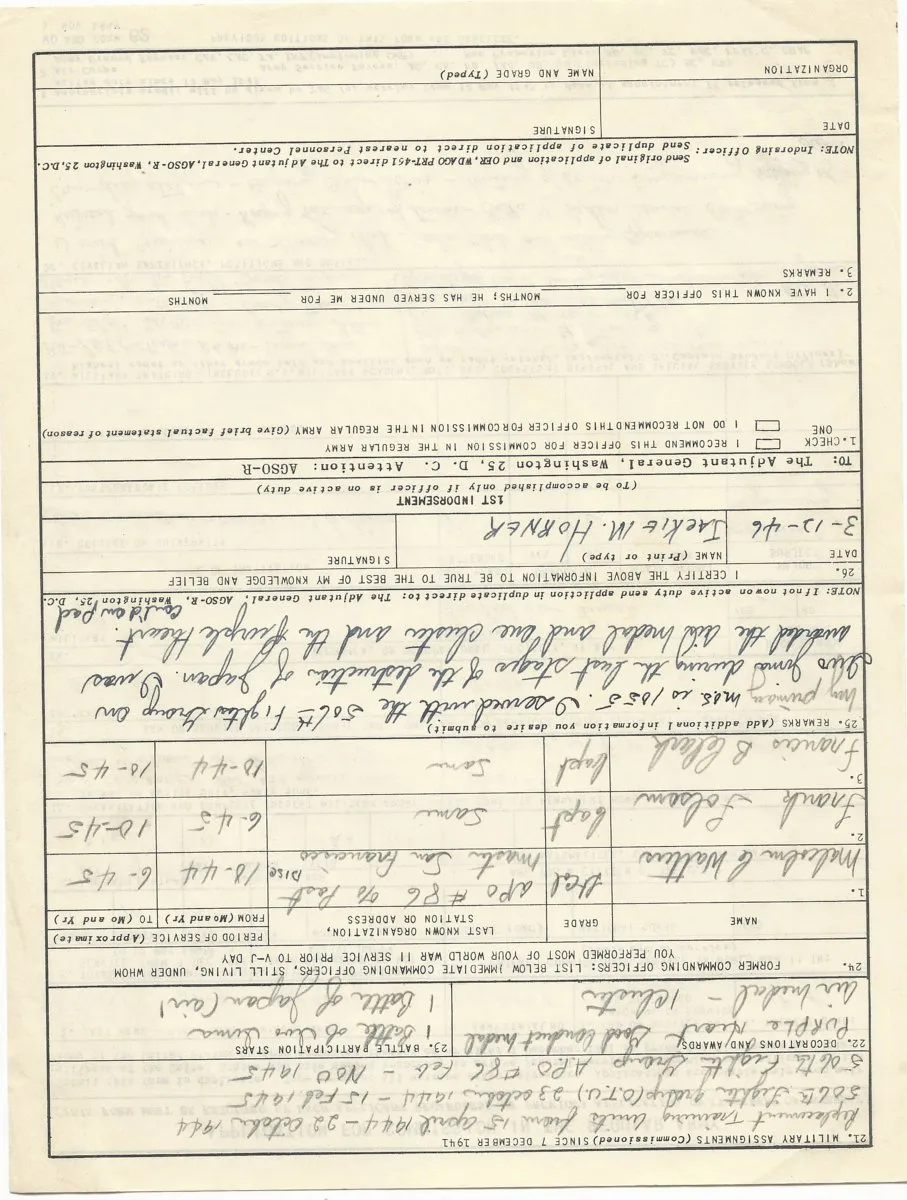 21. MILITARY ASSIGNMENTS (Commissioned) SINCE 7 DECEMBER 1941
Replacement Training Units from 15 april 1944 - 22 october 1944
506th Fighter group (O.T.U) 23 october 1944 - 15 Feb 1945
506th Fighter Group APO #86 Feb - Nov 1945
22. DECORATIONS AND AWARDS
PURPLE Heart Good Conduct medal
Air medal - 1 Cluster
23. BATTLE PARTICIPATION STARS
1 Battle of Iwo Jima
1 Battle of Japan (air)
24. FORMER COMMANDING OFFICERS: LIST BELOW IMMEDIATE COMMANDING OFFICERS, STILL LIVING, UNDER WHOM
YOU PERFORMED MOST OF YOUR WORLD WAR II SERVICE PRIOR TO V-J DAY
NAME GRADE LAST KNOWN ORGANIZATION, STATION OR ADDRESS PERIOD OF SERVICE (Approximate)
FROM (Mo and Yr) TO (Mo and Yr)
1. Malcolm C Watters APO #86 c/o Post Master San Francisco 10-44 6-45
2. Frank Folsom Capt Same 6-45 10-45
3. Francis B Clark Capt Same 10-44 10-45
25. REMARKS (Add additional information you desire to submit)
My primary mos is 1055. I served with the 506th Fighter Group on
Iwo Jima during the last stages of the destruction of Japan. I was
awarded the air medal and one cluster and the Purple Heart.
NOTE: If not now on active duty send application in duplicate direct to: The Adjutant General, AGSO-R, Washington 25, D.C.
26. I CERTIFY THE ABOVE INFORMATION TO BE TRUE TO THE BEST OF MY KNOWLEDGE AND BELIEF
DATE NAME (Print or type) SIGNATURE
3-12-46 JACKIE M. HORNER
1ST INDORSEMENT
(To be accomplished only if officer is on active duty)
TO: The Adjutant General, Washington 25, D. C. Attention: AGSO-R
1. CHECK ONE
I RECOMMEND THIS OFFICER FOR COMMISSION IN THE REGULAR ARMY
I DO NOT RECOMMEND THIS OFFICER FOR COMMISSION IN THE REGULAR ARMY (Give brief factual statement of reason)
2. I HAVE KNOWN THIS OFFICER FOR MONTHS; HE HAS SERVED UNDER ME FOR MONTHS
3. REMARKS
NOTE: Indorsing Officer: Send original of application and OER, WD AGO PRT-451 direct to The Adjutant General, AGSO-R, Washington 25, D.C.
Send duplicate of application to nearest Personnel Center.
DATE SIGNATURE
ORGANIZATION NAME AND GRADE (Typed)